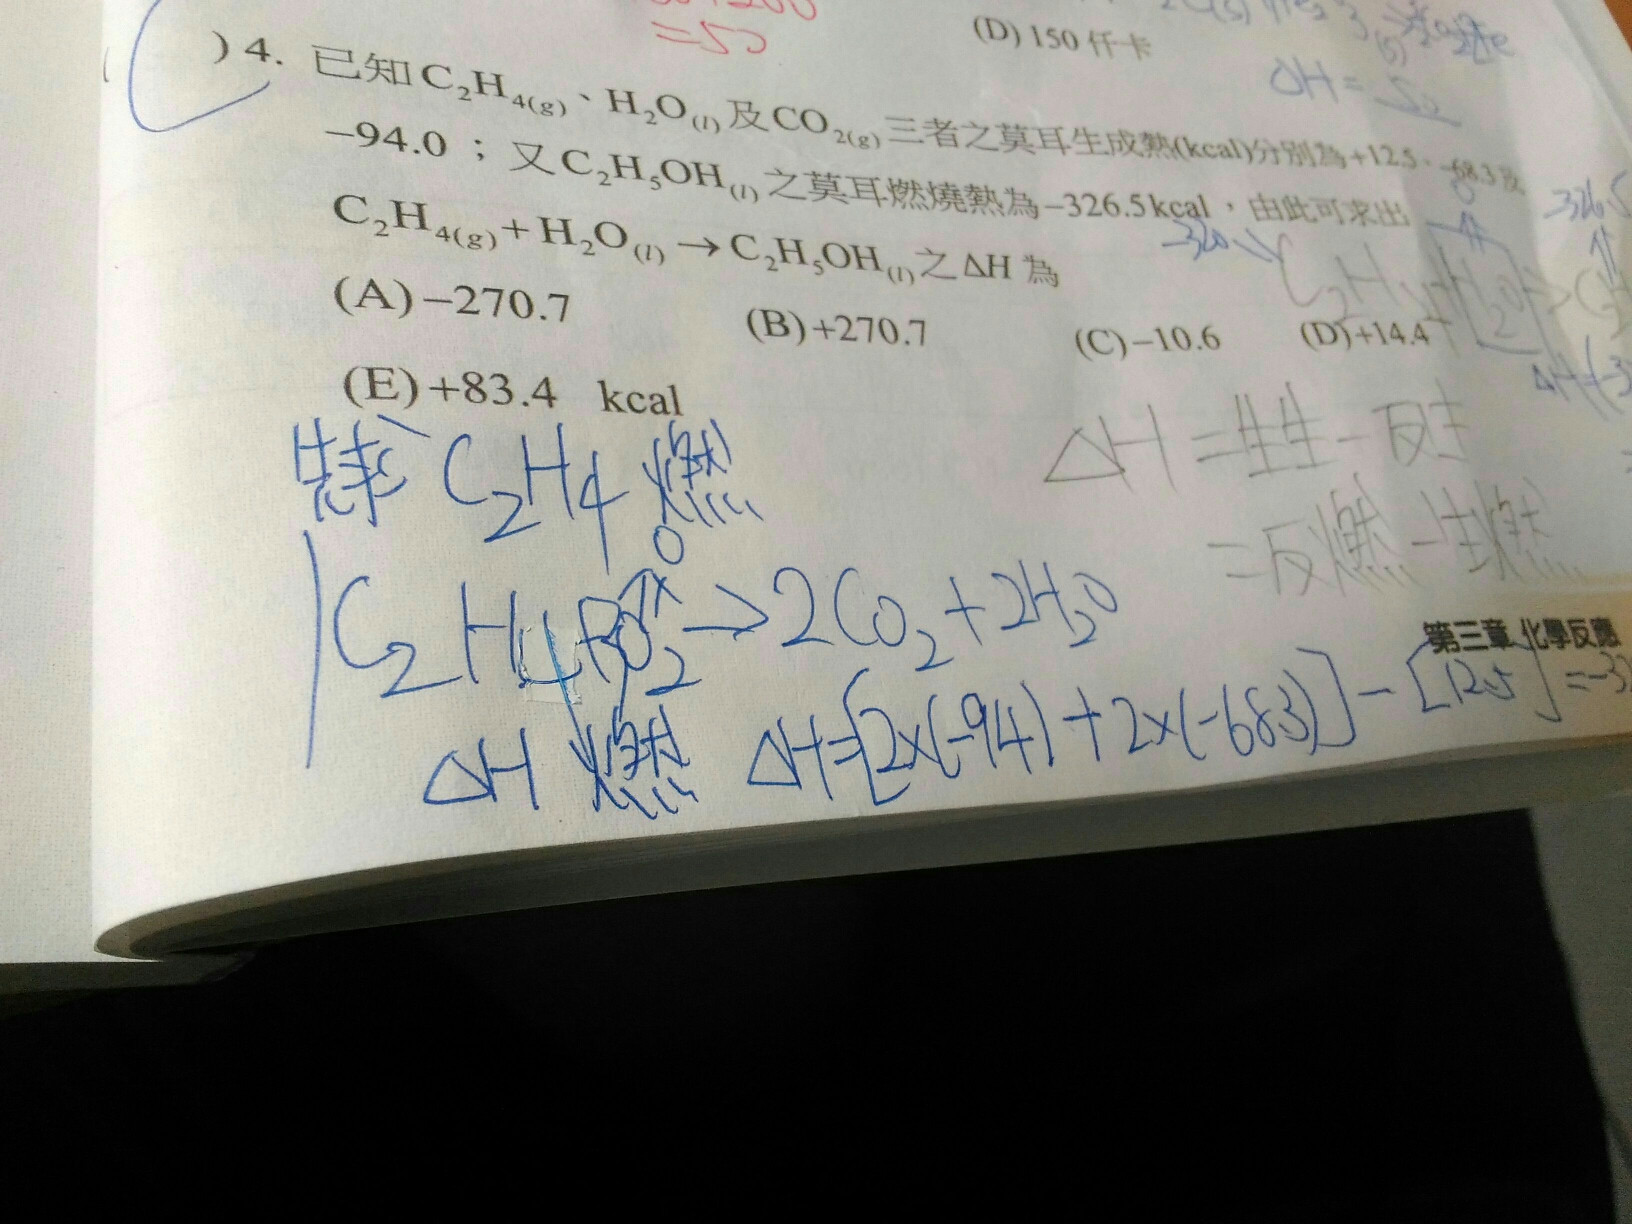 =50
(D)150仟卡
ΔH=50
)4. 已知C₂H₄(g)、H₂O(l)及CO₂(g)三者之莫耳生成熱(kcal)分別為+12.5、-68.3及
-94.0；又C₂H₅OH(l)之莫耳燃燒熱為-326.5kcal，由此可求出
C₂H₄(g)+H₂O(l)→C₂H₅OH(l)之ΔH為
(A)-270.7 (B)+270.7 (C)-10.6 (D)+14.4
(E)+83.4 kcal
先求 C₂H₄ 燃
ΔH=生生-反生
=反燃-生燃
0
→2CO₂+2H₂O
第三章 化學反應
ΔH燃 ΔH=[2×(-94)+2×(-683)]-[12.5]